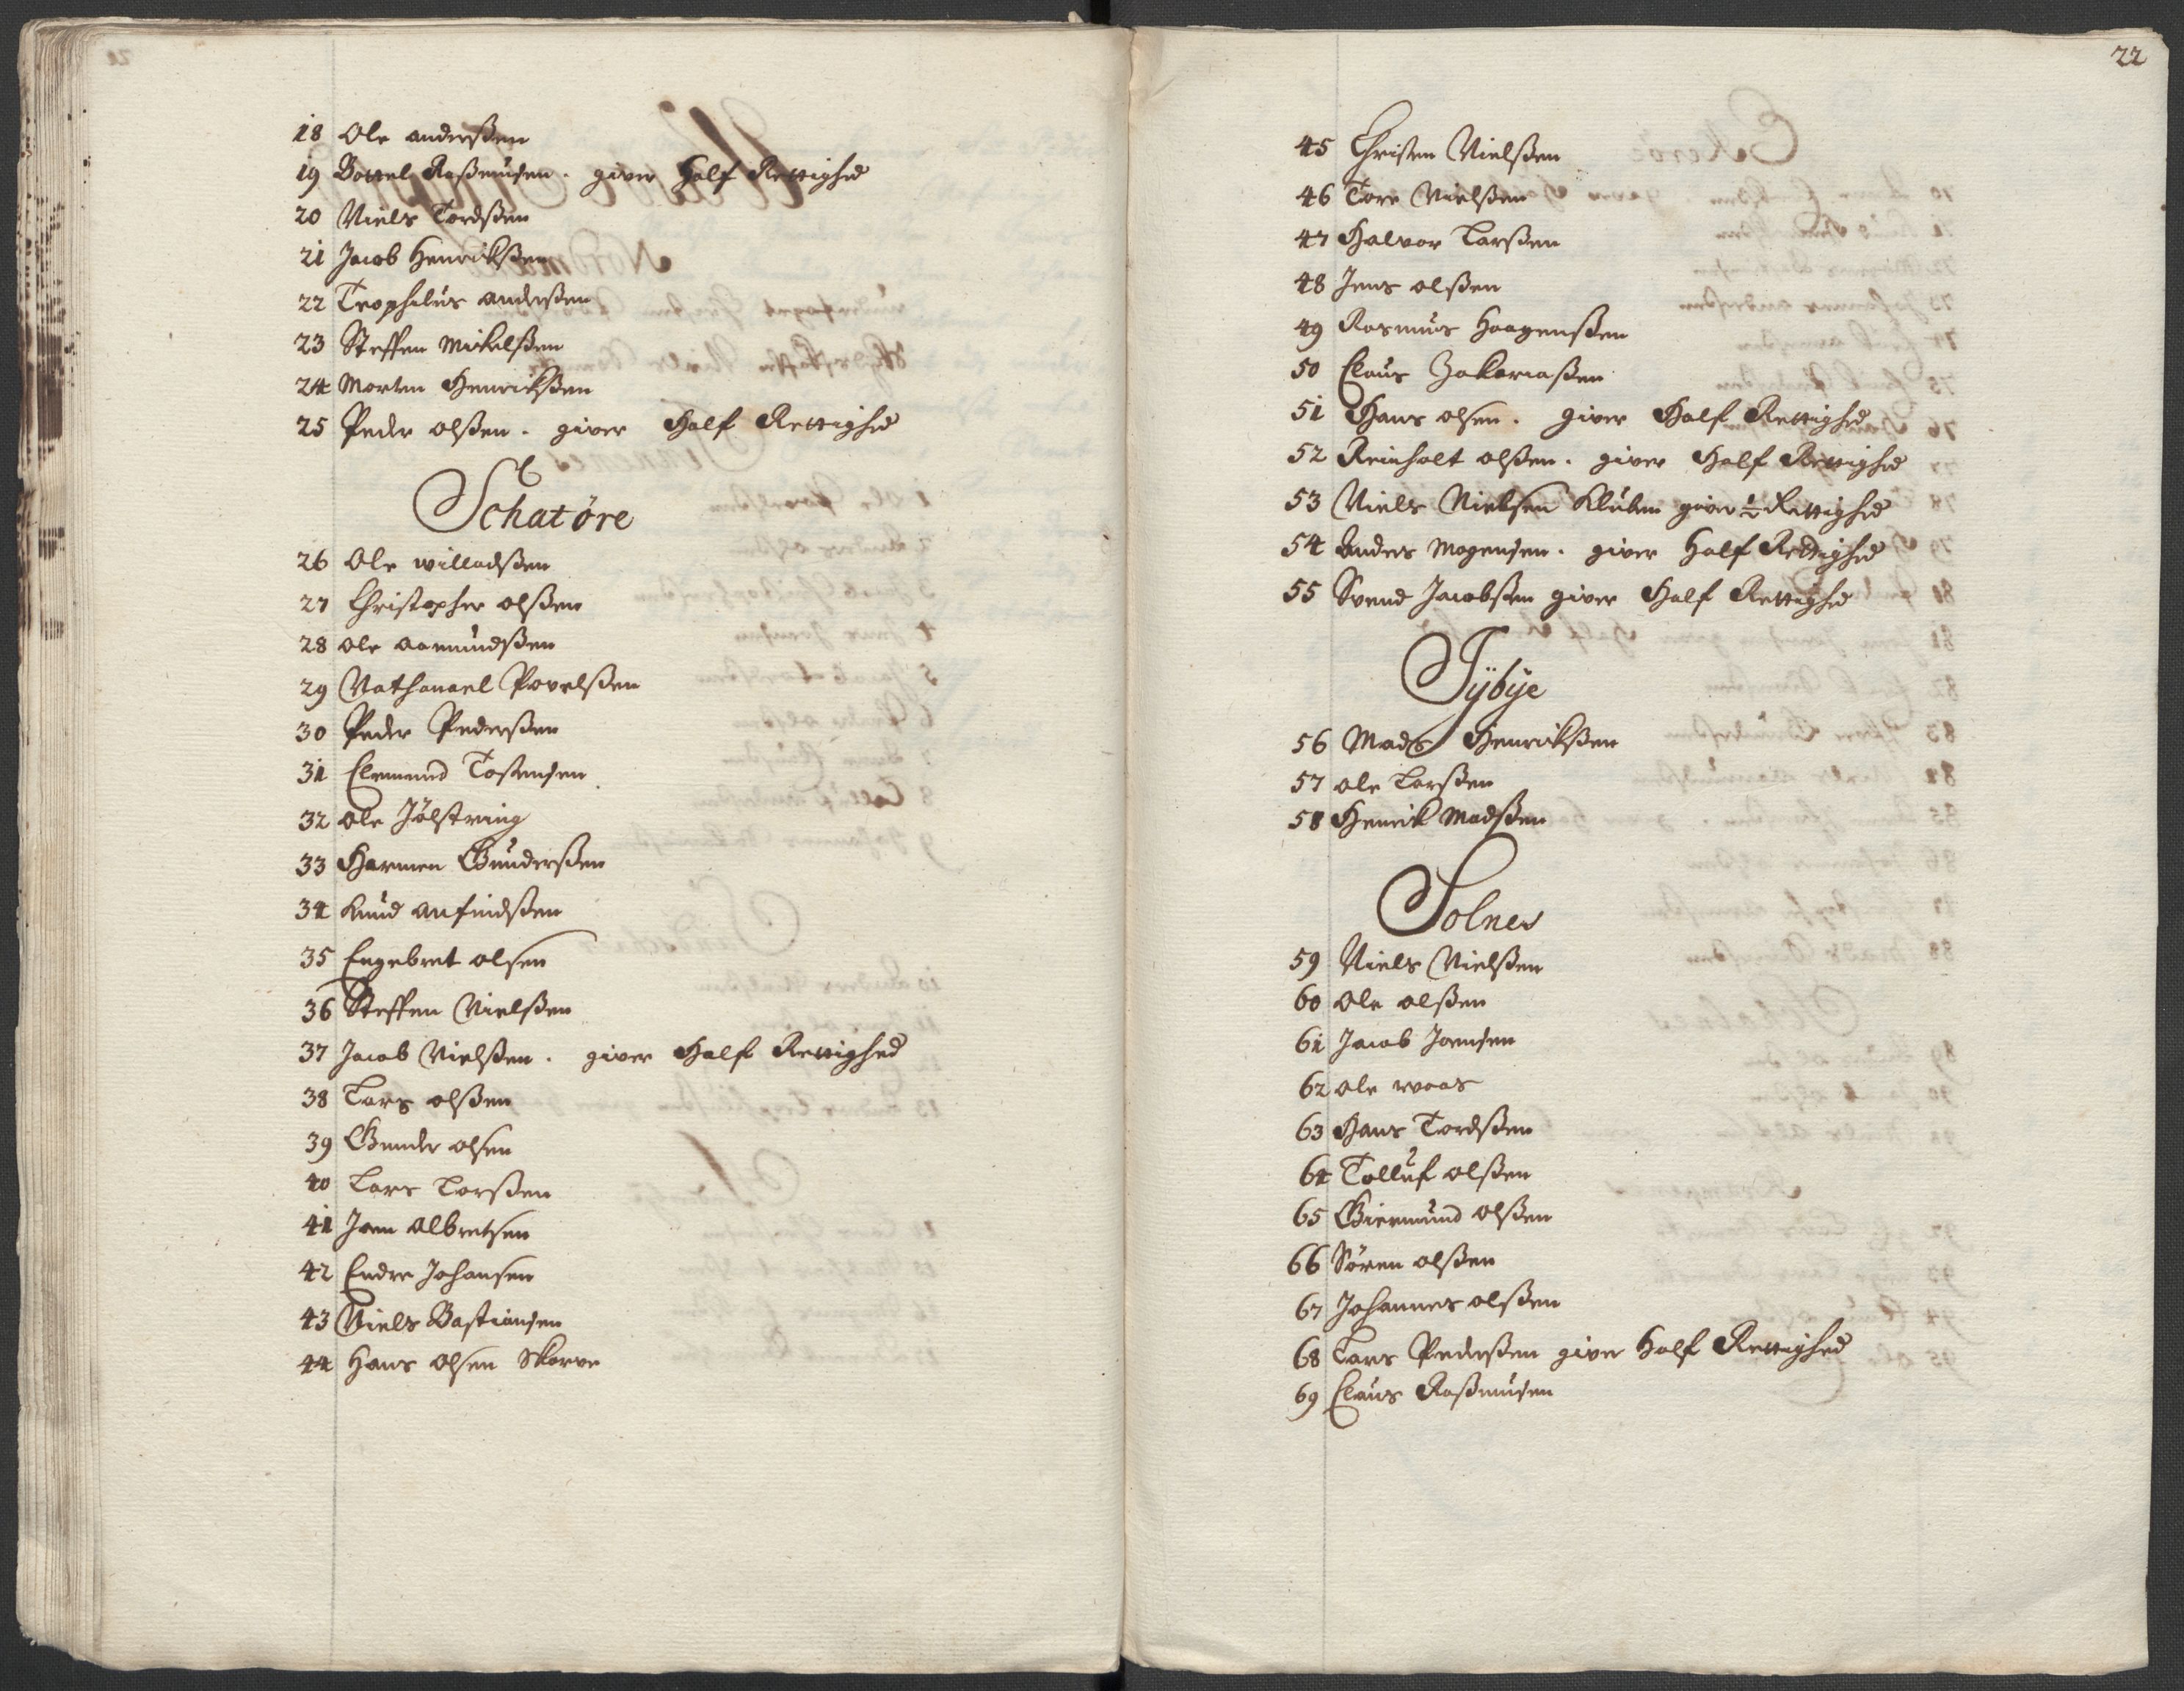 18 Ole anderßen
19 Bottel Raßmusen. giver Half Rettighed
20 Niels Tordßen
21 Jacob Henrickßen
22 Teophelus anderßen
23 Steffen Mickelßen
24 Morten Henrickßen
25 Peder olßen. giver Half Rettighed
Schatøre
26 Ole willadßen
27 Christopher olßen
28 ole aamundßen
29 Nathanael Povelßen
30 Peder Pederßen
31 Elemund Tostensen
32 ole Jölstring
33 Harmen Gunderßen
34 Knud Anfindßen
35 Engebret olsen
36 Steffen Nielßen
37 Jacob Nielßen. giver Half Rettighed
38 Lars olßen
39 Gunder olsen
40 Lars Larßen
41 Joen Albretsen
42 Endre Johansen
43 Niels Bastiansen
44 Hans olsen Skorve
22
45 Christen Nielßen
46 Tore Nielßen
47 Halvor Larßen
48 Jens olßen
49 Rasmus Haagenßen
50 Claus Zakariaßen
51 Hans olsen. giver Half Rettighed
52 Reinholt olßen. giver Half Rettighed
53 Niels Nielsen Kluben giver ½ Rettighed
54 Anders Mogensen. giver Half Rettighed
55 Svend Jacobßen giver Half Rettighed
Tÿbÿe
56 Mads Henrickßen
57 ole Larßen
58 Henrik Madßen
Solnes
59 Niels Nielßen
60 Ole olßen
61 Jacob Joensen
62 ole waas
63 Hans Tordßen
64 Tolluf olßen
65 Giermund olßen
66 Sören olßen
67 Johannes olßen
68 Lars Pederßen giver Half Rettighed
69 Claus Raßmusen